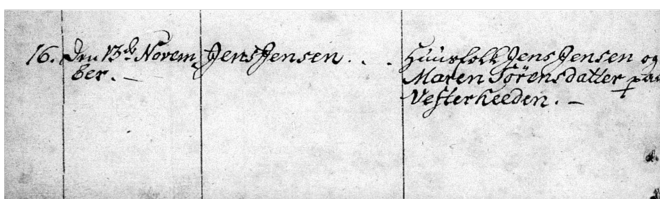 16. Den 13de Novem Jens Jensen. . . Huusfolk Jens Jensen og
ber. — Maren Sørensdatter paa
Vesterheeden. —